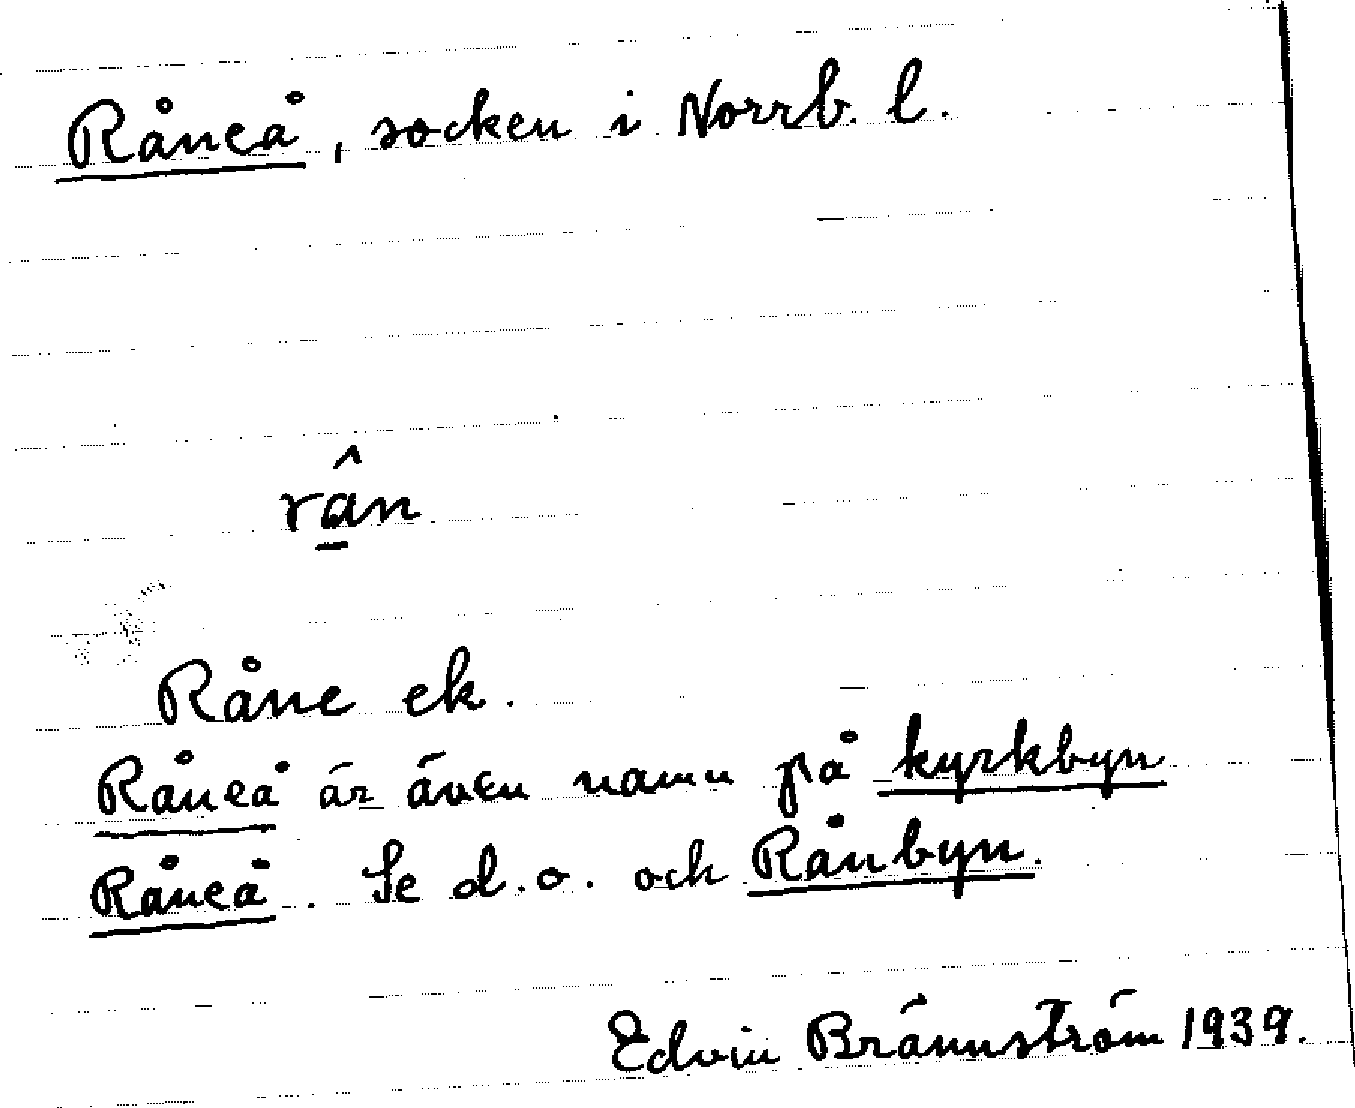 Råneå, socken i Norrb. l.
rân
Råne ek.
Råneå är även namn på kyrkbyn
Råneå. Se d.o. och Rånbyn.
Edvin Brännström 1939.